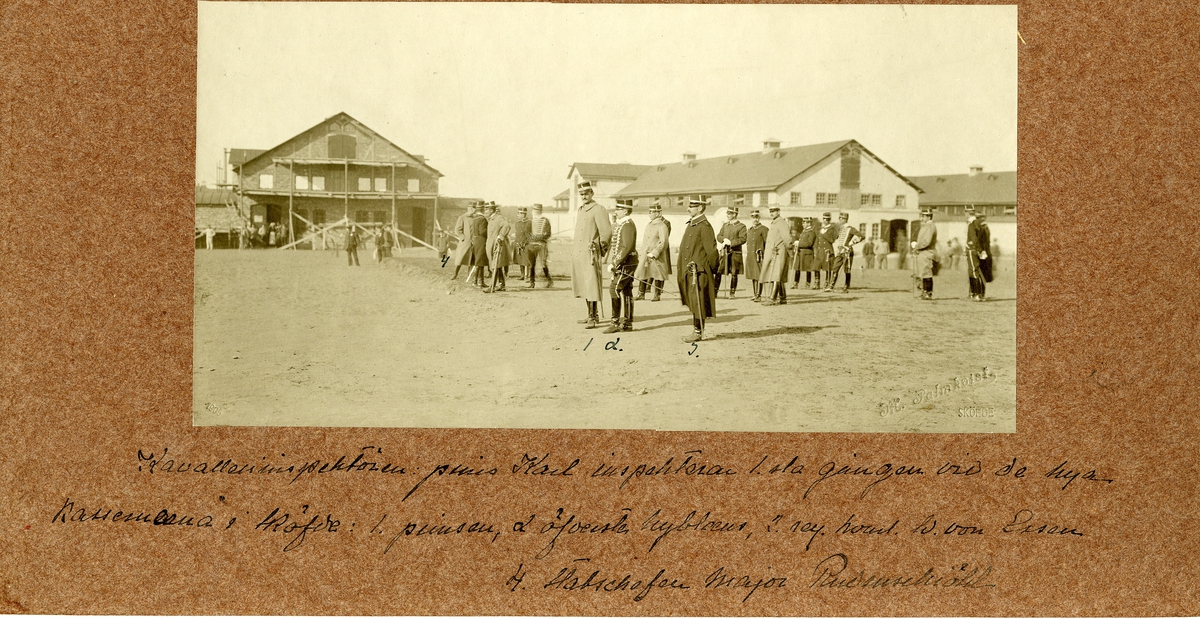 4
1 2. 3.
SKÖFDE
Kavalleriinspektören: prins Karl inspekterar 1:sta gången vid de nya
Kasernerna i Sköfde: 1. prinsen, 2 öfverste Nyblæus, 3. reg. kvart. W. von Essen
4. Stabschefen Major Rudenschiöld